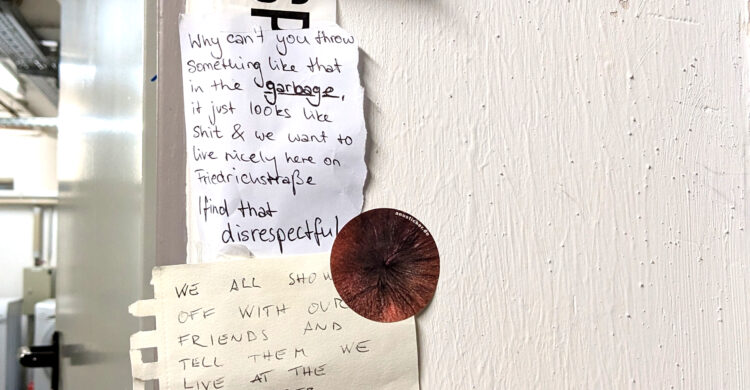 Why can't you throw
something like that
in the garbage,
it just looks like
shit & we want to
live nicely here on
Friedrichstraße
I find that
disrespectful
WE ALL SHOW
OFF WITH OUR
FRIENDS AND
TELL THEM WE
LIVE AT THE